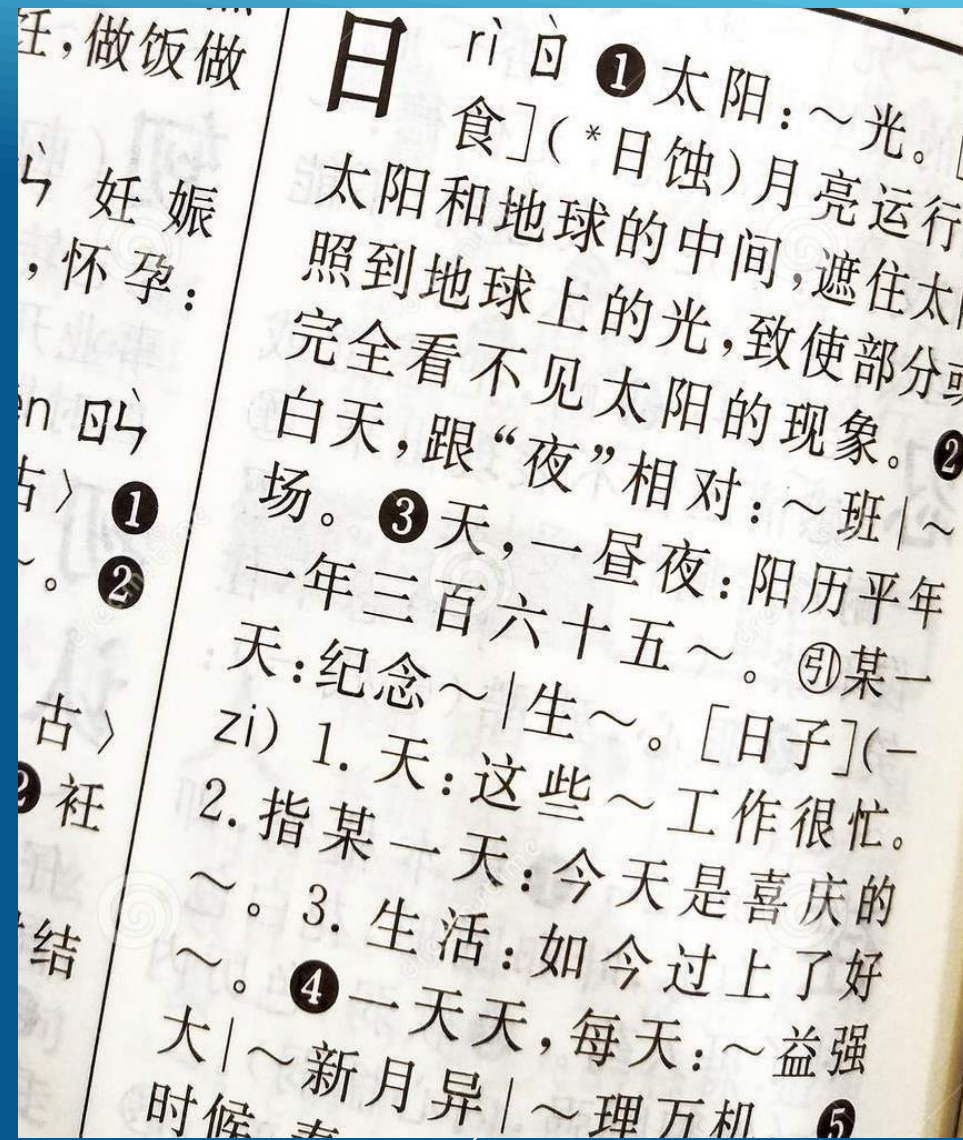 饪,做饭做
ㄣˋ 妊娠
,怀孕:
en ㄖㄣˋ
古〉❶
~。❷
古〉
❷衽
结
日 rì ㄖˋ ❶太阳:~光。[
食](*日蚀)月亮运行
太阳和地球的中间,遮住太阳
照到地球上的光,致使部分或
完全看不见太阳的现象。❷
白天,跟“夜”相对:~班|~
场。❸天,一昼夜:阳历平年
一年三百六十五~。㊀引某一
天:纪念~|生~。[日子](–
zi) 1. 天:这些~工作很忙。
2. 指某一天:今天是喜庆的
~。3. 生活:如今过上了好
~。❹一天天,每天:~益强
大|~新月异|~理万机 ❺
时候 春